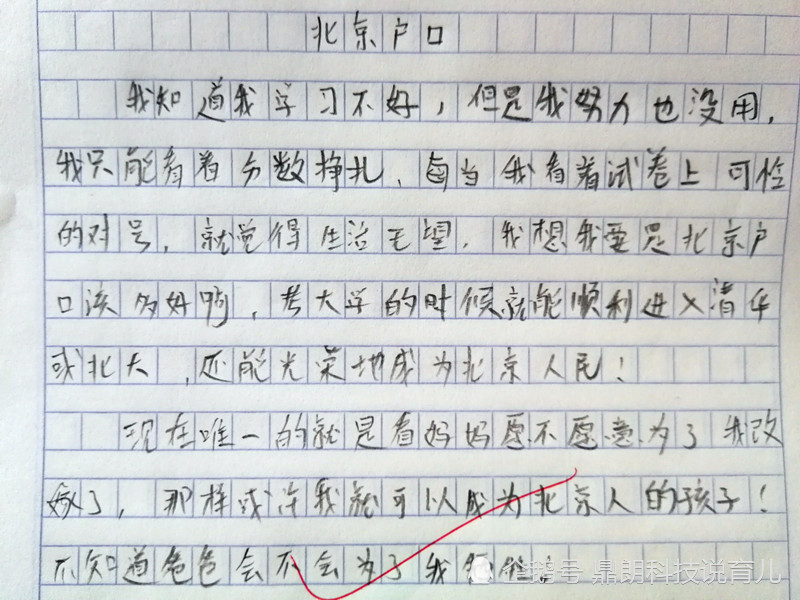 北京户口
我知道我学习不好，但是我努力也没用，
我只能看着分数挣扎、每当我看着试卷上可怜
的对号，就觉得生活无望．我想我要是北京户
口该多好啊，考大学的时候就能顺利进入清华
或北大，还能光荣地成为北京人民！
现在唯一的就是看妈妈愿不愿意为了我改
嫁了，那样或许我就可以成为北京人的孩子！
不知道爸爸会不会为了我牺牲！
企鹅号 鼎朗科技说育儿